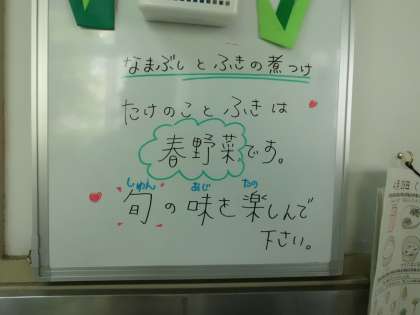 なまぶしとふきの煮つけ
たけのことふきは
春野菜です。
しゅん あじ たの
旬の味を楽しんで
下さい。